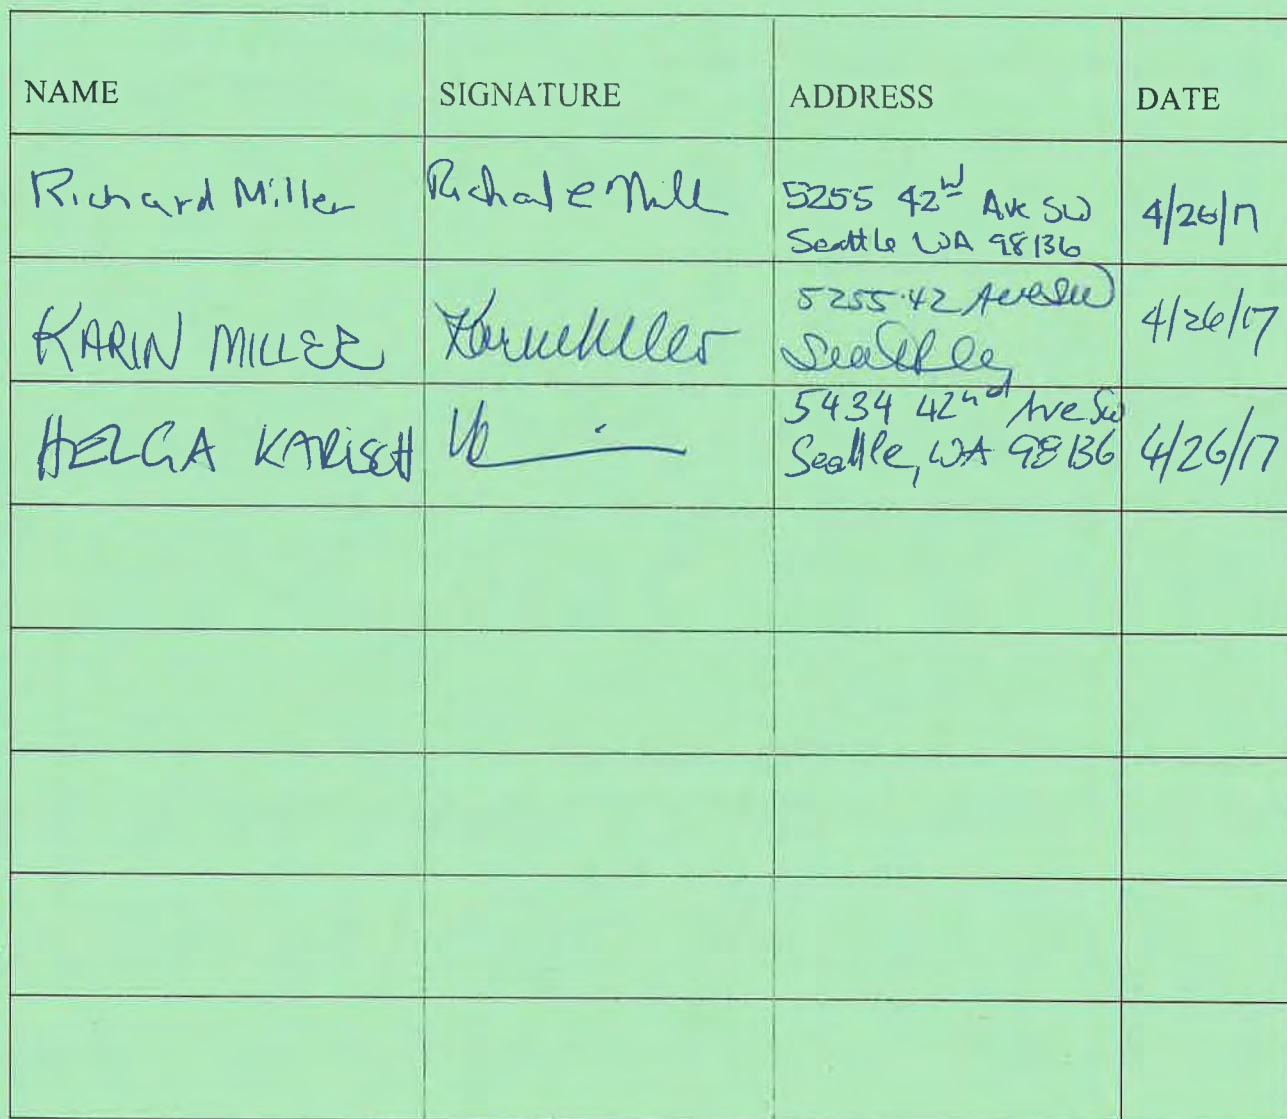 NAME SIGNATURE ADDRESS DATE
Richard Miller Richard E Mill 5255 42nd Ave SW 4/26/17
Seattle WA 98136
KARIN MILLER Karin Miller 5255 42 Ave SW 4/26/17
Seattle
HELGA KARISCH 5434 42nd Ave SW 4/26/17
Seattle, WA 98136